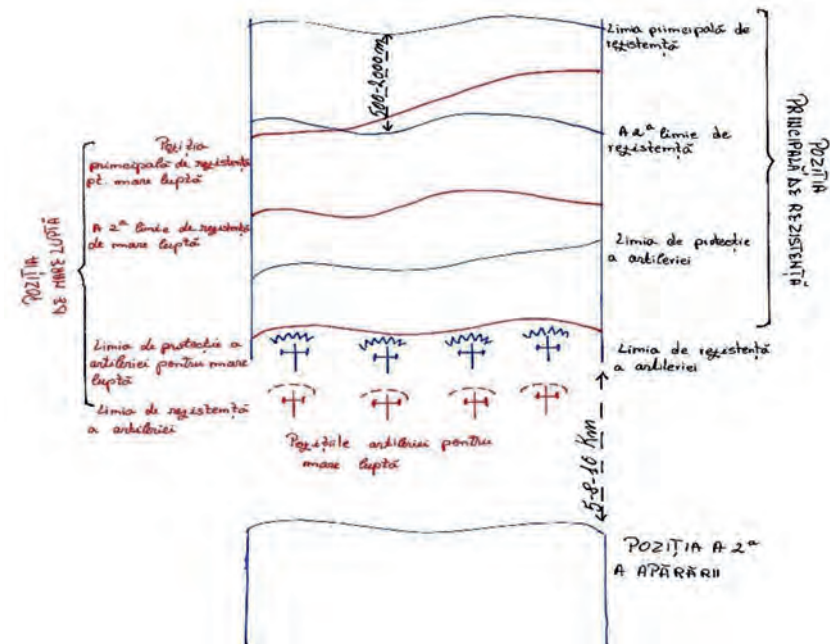 Linia principală de
rezistență
500-2000 m
A 2ª linie de
rezistență
POZIȚIA
PRINCIPALĂ DE REZISTENȚĂ
Poziția
principală de rezistență
pt. mare luptă
A 2ª linie de rezistență
de mare luptă
POZIȚIA
DE MARE LUPTĂ
Linia de protecție
a artileriei
Linia de protecție a
artileriei pentru mare
luptă
Linia de rezistență
a artileriei
Linia de rezistență
a artileriei
Pozițiile artileriei pentru
mare luptă
5-8-10 Km
POZIȚIA A 2ª
A APĂRĂRII